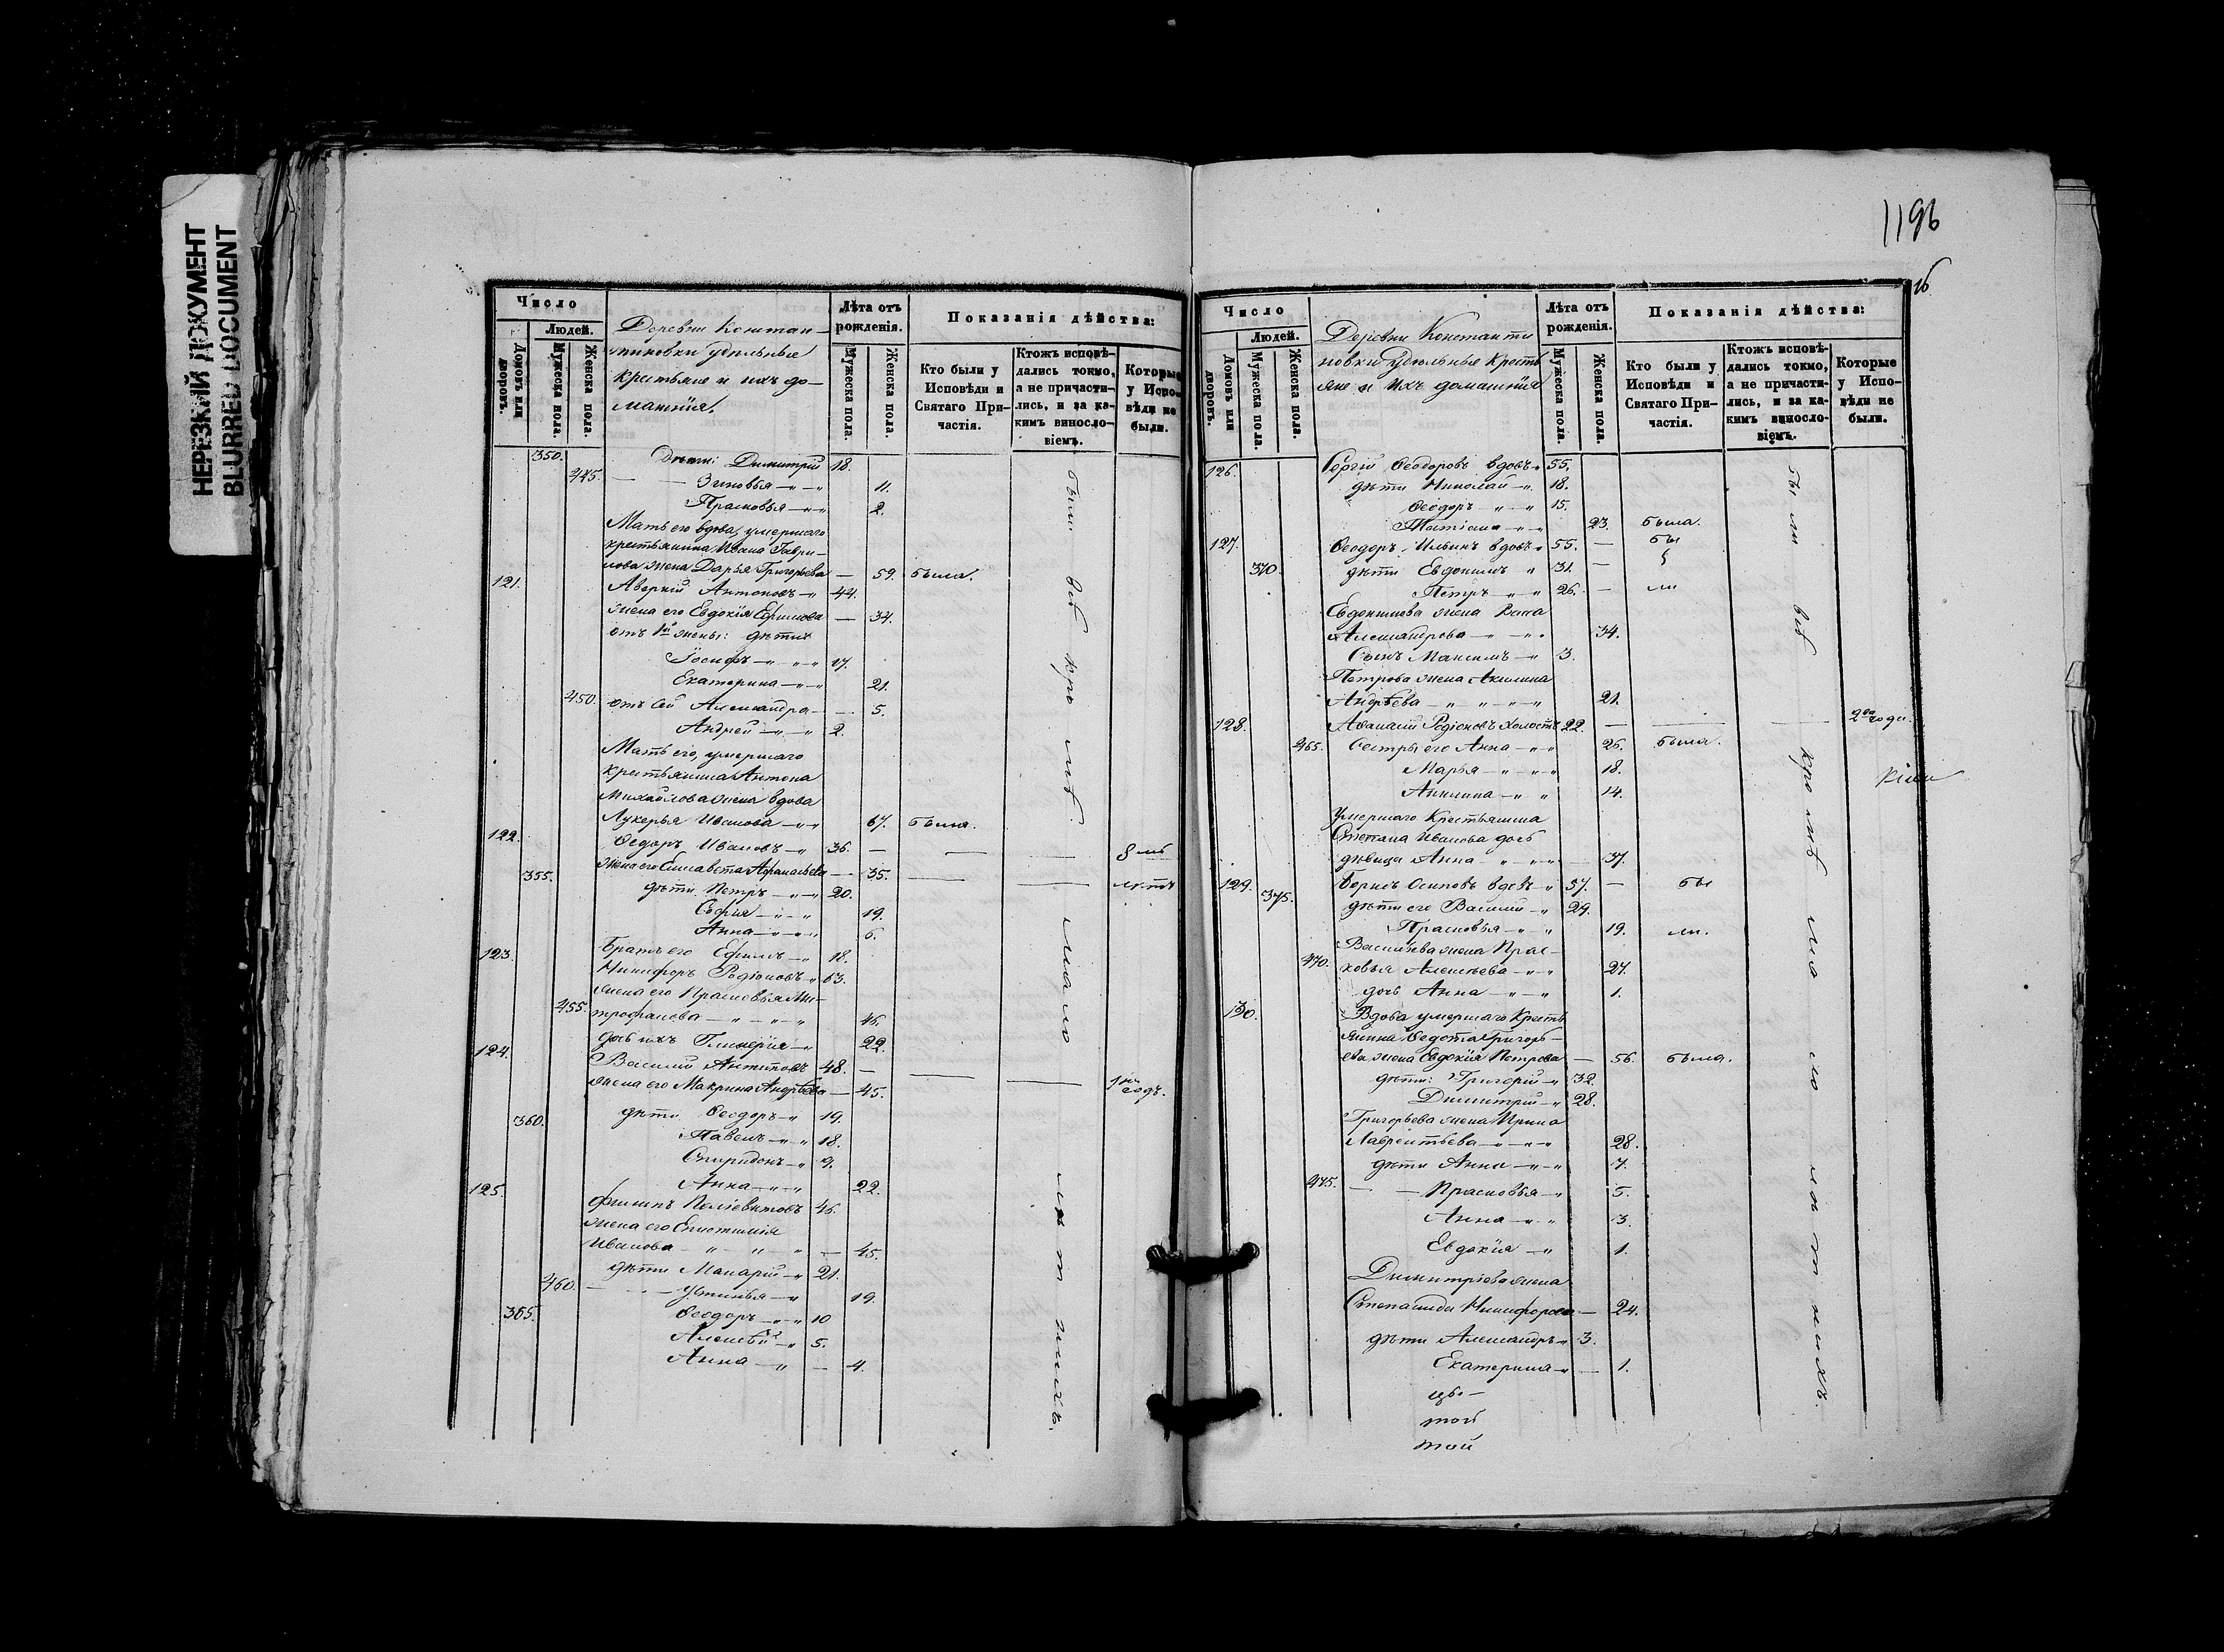 НЕРЕЗКИЙ ДОКУМЕНТ
BLURRED DOCUMENT
Число
Людей.
Домовъ или дворовъ.
Мужеска пола.
Женска пола.
Деревни Констан–
тиновки удѣльные
крестьяне и ихъ до–
машнія.
Лѣта отъ рожденія.
Мужеска пола.
Женска пола.
Показанія дѣйства:
Кто были у Исповѣди и Святаго При–частія.
Ктожъ исповѣ–дались токмо, а не причасти–лись, и за ка–кимъ винослo–віемъ.
Которые у Испо–вѣди не были.
350. Дѣти: Димитрій 18.
445. Зиновья 11.
Прасковья 2.
Мать его вдова, умершаго
крестьянина Ивана Гаври–
лова жена Дарья Григорьева — 59. была.
121. Аверкій Антоновъ 44.
жена его Евдокія Ефимова — 34.
отъ 1й жены: дѣти
Іосифъ 17.
Екатерина 21.
450. отъ сей Александра — 5.
Андрей 2.
Мать его, умершаго
крестьянина Антона
Михайлова жена вдова
Лукерья Иванова 67. была.
122. Ѳедоръ Ивановъ 36. — — — 8 мь
жена его Елисавета Афанасьева — 35. — — лѣтъ
355. дѣти Петръ 20.
Софія 19.
Анна 6.
Братъ его Ефимъ 18.
123. Никифоръ Родіоновъ 63.
жена его Прасковья Ми–
455. трофанова 46.
дочь ихъ Гликерія 22.
124. Василій Антиповъ 48. — — — 1нъ годъ.
жена его Макрина Андрѣева — 45.
дѣти Ѳеодоръ 19.
360. Павелъ 18.
Спиридонъ 9.
Анна 22.
125. Филипъ Поліевктовъ 46.
жена его Епистимія
Иванова — 45.
дѣти Макарій 21.
460. Устинья 19.
365. Ѳеодоръ 10
Алексѣй 5.
Анна — 4.
были всѣ кро мѣ мало лѣт нихъ.
1196
16
Число
Людей.
Домовъ или дворовъ.
Мужеска пола.
Женска пола.
Деревни Константи
новки удѣльные кресть
яне и ихъ домашнія
Лѣта отъ рожденія.
Мужеска пола.
Женска пола.
Показанія дѣйства:
Кто были у Исповѣди и Святаго При–частія.
Ктожъ исповѣ–дались токмо, а не причасти–лись, и за ка–кимъ винослo–віемъ.
Которые у Испо–вѣди не были.
126. Георгій Ѳеодоровъ вдовъ 55.
дѣти Николай 18.
Ѳеодоръ 15.
Татіана 23. была.
127. Ѳеодоръ Ильинъ вдовъ 55. — бы
370. дѣти Евдокимъ 31. —
Петръ 26. — ли
Евдокимова жена Васса
Александрова 34.
Сынъ Максимъ 3.
Петрова жена Акилина
Андрѣева 21.
128. Аѳанасій Родіоновъ холостъ 22. — — — 2ва года.
465. Сестры его Анна 26. была.
Марья 18.
Акилина 14.
Умершаго Крестьянина
Степана Иванова дочь
дѣвица Анна — 37.
129. Борисъ Осиповъ вдовъ 57. — бы
375. дѣти его Василій 29.
Прасковья 19. ли.
Васильева жена Прас–
470. ковья Алексѣева 27.
дочь Анна 1.
130. Вдова умершаго Кресть
янина Ѳедота Григорь–
ева жена Евдокія Петрова — 56. была.
дѣти: Григорій 32.
Димитрій 28.
Григорьева жена Ирина
Лаврентьева 28.
дѣти Анна 7.
475. Прасковья 5.
Анна 3.
Евдокія 1.
Димитріева жена
Степанида Никифорова — 24.
дѣти Александръ 3.
Екатерина — 1.
той
той
бы ли всѣ кро мѣ ма ло лѣт нихъ.